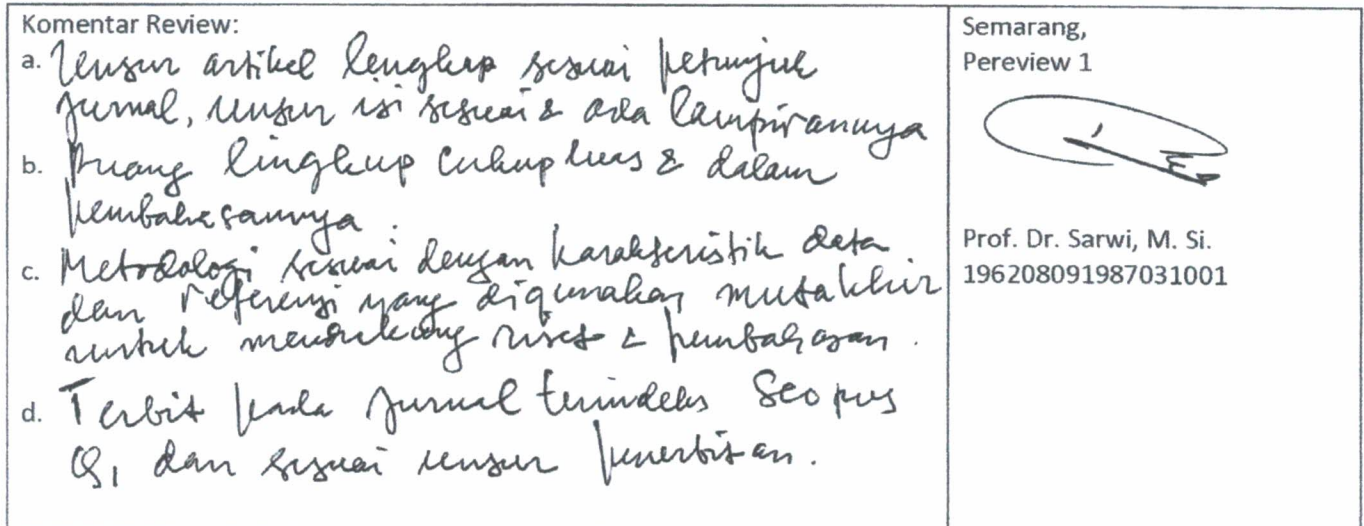 Komentar Review:
a. Unsur artikel lengkap sesuai petunjuk
jurnal, unsur isi sesuai & ada lampirannya
b. Ruang lingkup cukup luas & dalam
pembahasannya.
c. Metodologi sesuai dengan karakteristik data
dan referensi yang digunakan mutakhir
untuk mendukung riset & pembahasan.
d. Terbit pada jurnal terindeks Scopus
Q1 dan sesuai unsur penerbitan.
Semarang,
Pereview 1
Prof. Dr. Sarwi, M. Si.
196208091987031001